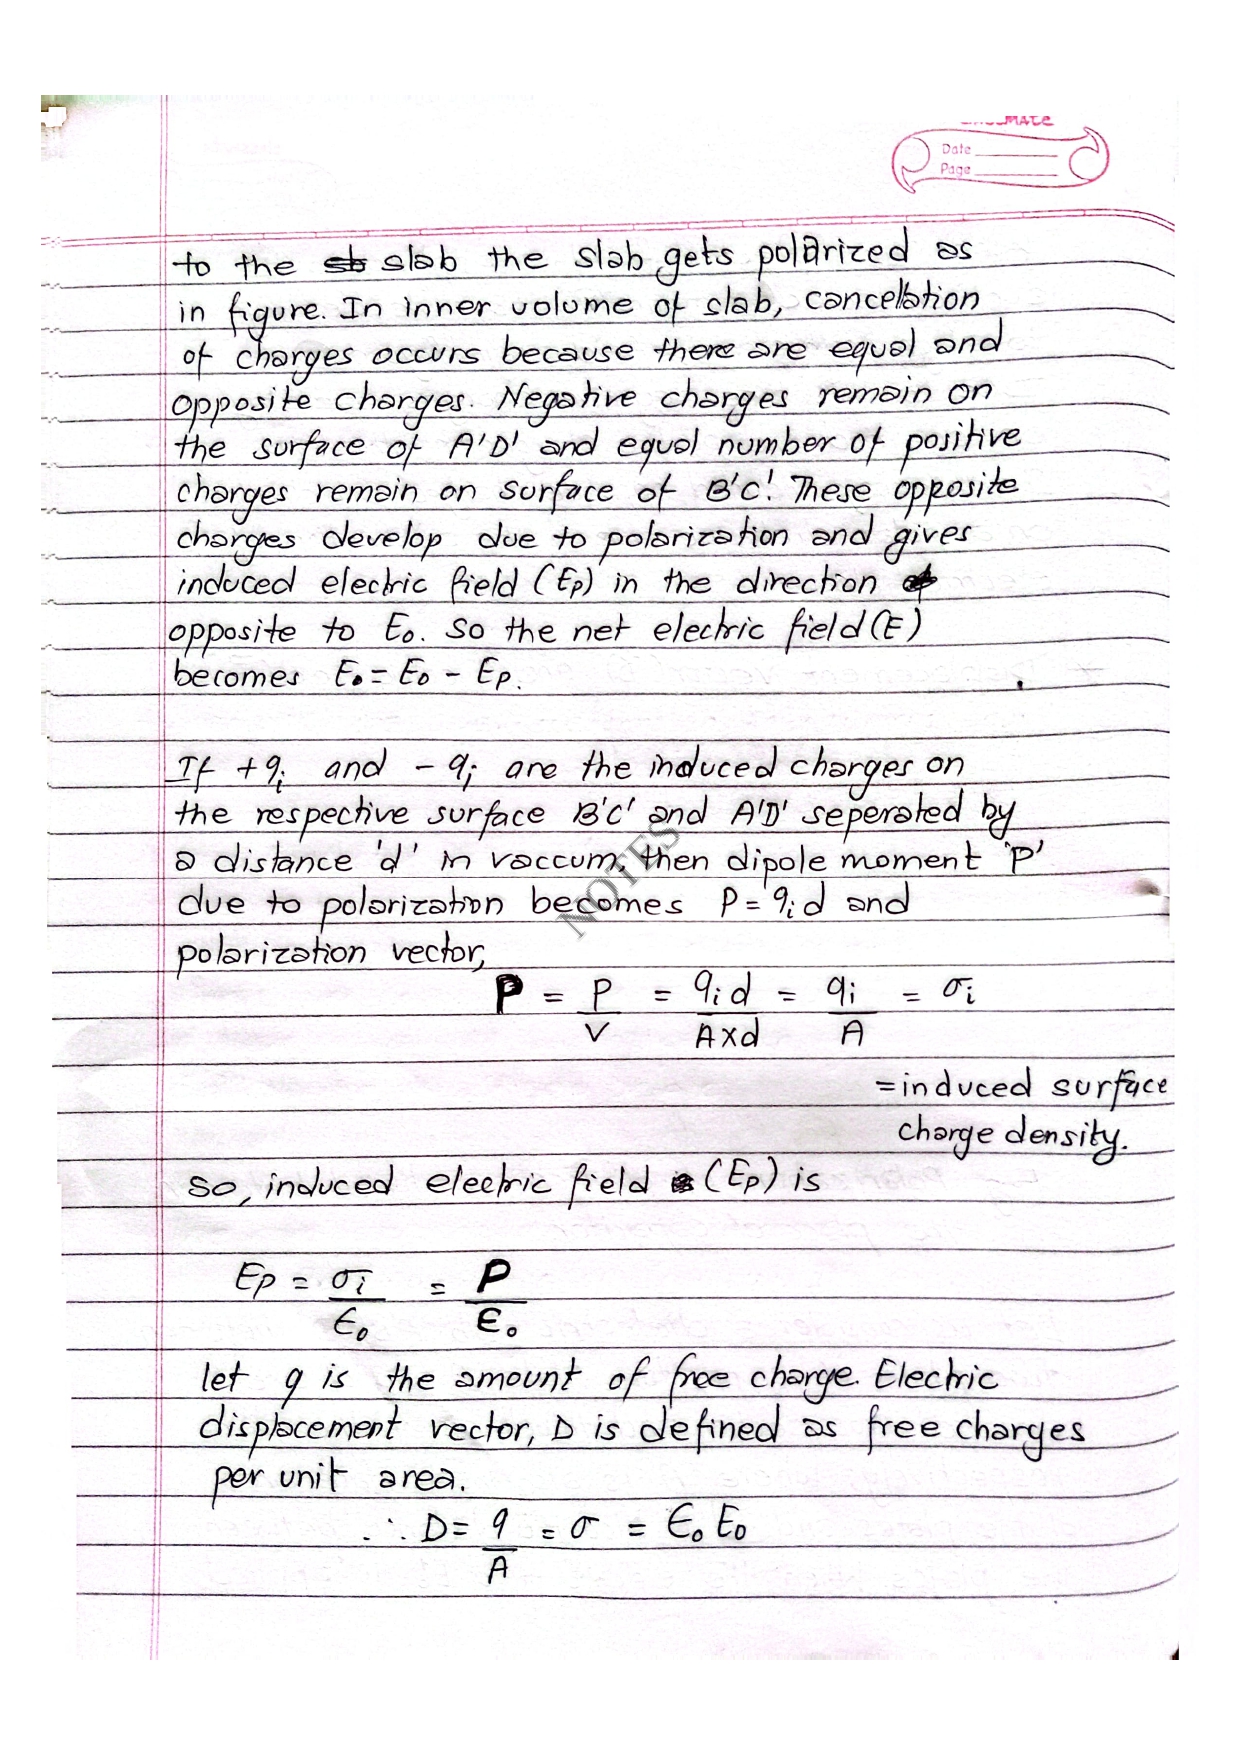 classmate
Date
Page
to the slab the slab gets polarized as
in figure. In inner volume of slab, cancellation
of charges occurs because there are equal and
opposite charges. Negative charges remain on
the surface of A'D' and equal number of positive
charges remain on surface of B'C'. These opposite
charges develop due to polarization and gives
induced electric field (Ep) in the direction
opposite to E₀. So the net electric field (E)
becomes E = E₀ - Ep.
If +qᵢ and - qᵢ are the induced charges on
the respective surface B'C' and A'D' seperated by
a distance 'd' in vaccum, then dipole moment 'P'
due to polarization becomes P = qᵢd and
polarization vector,
P = P/V = qᵢd/A×d = qᵢ/A = σᵢ
= induced surface
charge density.
So, induced electric field (Ep) is
Ep = σᵢ/ϵ₀ = P/ϵ₀
let q is the amount of free charge. Electric
displacement vector, D is defined as free charges
per unit area.
∴ D = q/A = σ = ϵ₀ E₀
NOTES